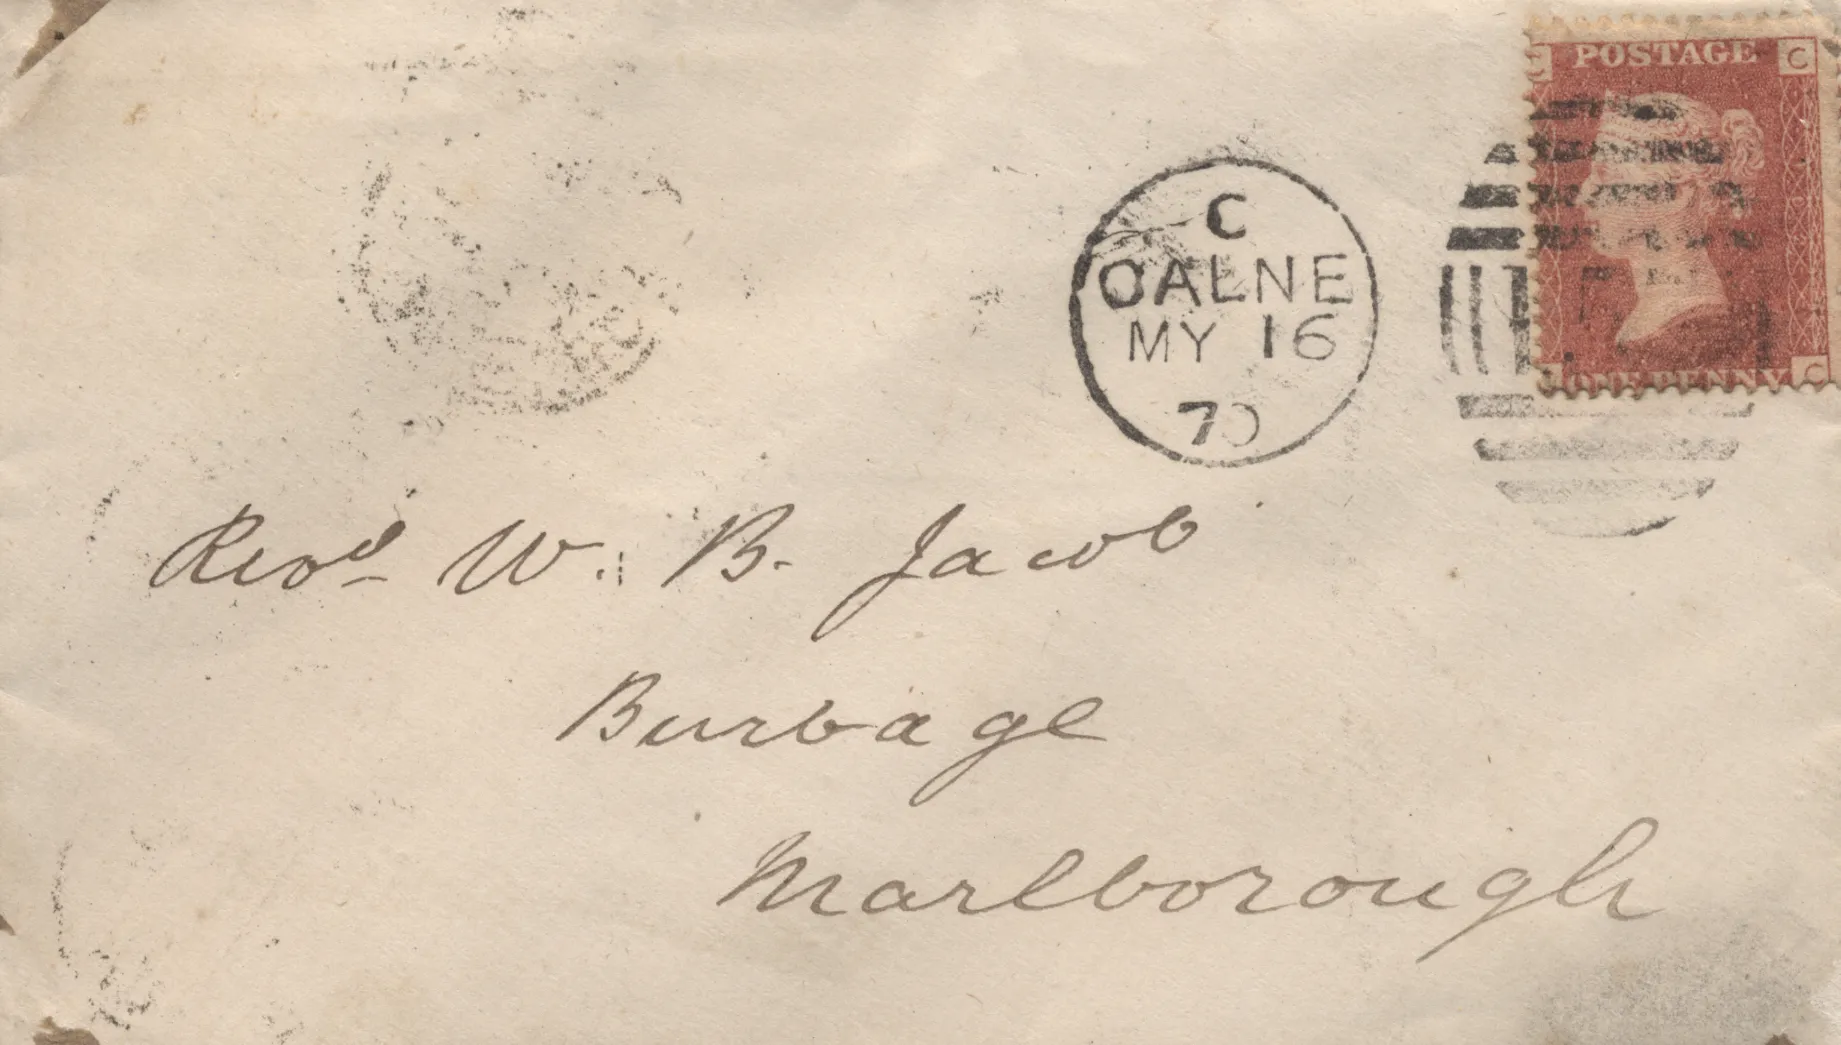 POSTAGE C
C
CALNE
MY 16
70
ONE PENNY C
Revd W. B. Jacob
Burbage
Marlborough